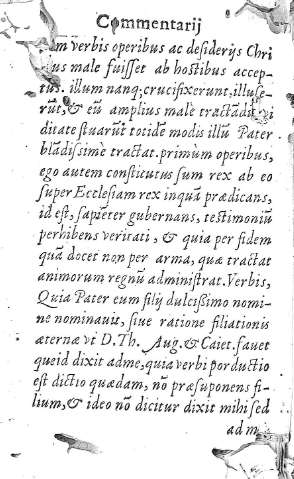 Commentarij
verbis operibus ac desiderijs Chri
us male fuisset ab hostibus accep-
tus. illum nanq; crucifixerunt, illuse-
rūt, & eū amplius male tractādi
situarūt totide modis illū Pater
blādissimè tractat. primùm operibus,
ego autem constitutus sum rex ab eo
super Ecclesiam rex inquā prædicans,
id est, sapieter gubernans, testimoniū
perhibens veritati, & quia per fidem
quā docet non per arma, quæ tractat
animorum regnū administrat. Verbis,
Quia Pater eum filij dulcißimo nomi-
ne nominauit, siue ratione filiationis
æternæ vt D. Th. Aug. & Caiet. fauet
queid dixit adme, quia verbi porductio
est dictio quædam, nō præsuponens fi-
lium, & ideo nō dicitur dixit mihi sed
ad m